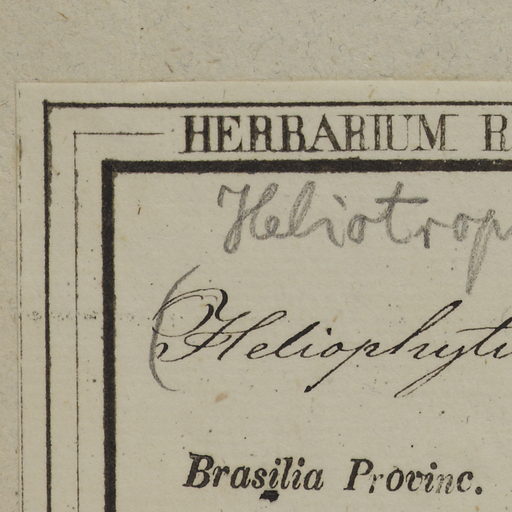 HERBARIUM R
Heliotrop
(Heliophyt
Brasilia Provinc.